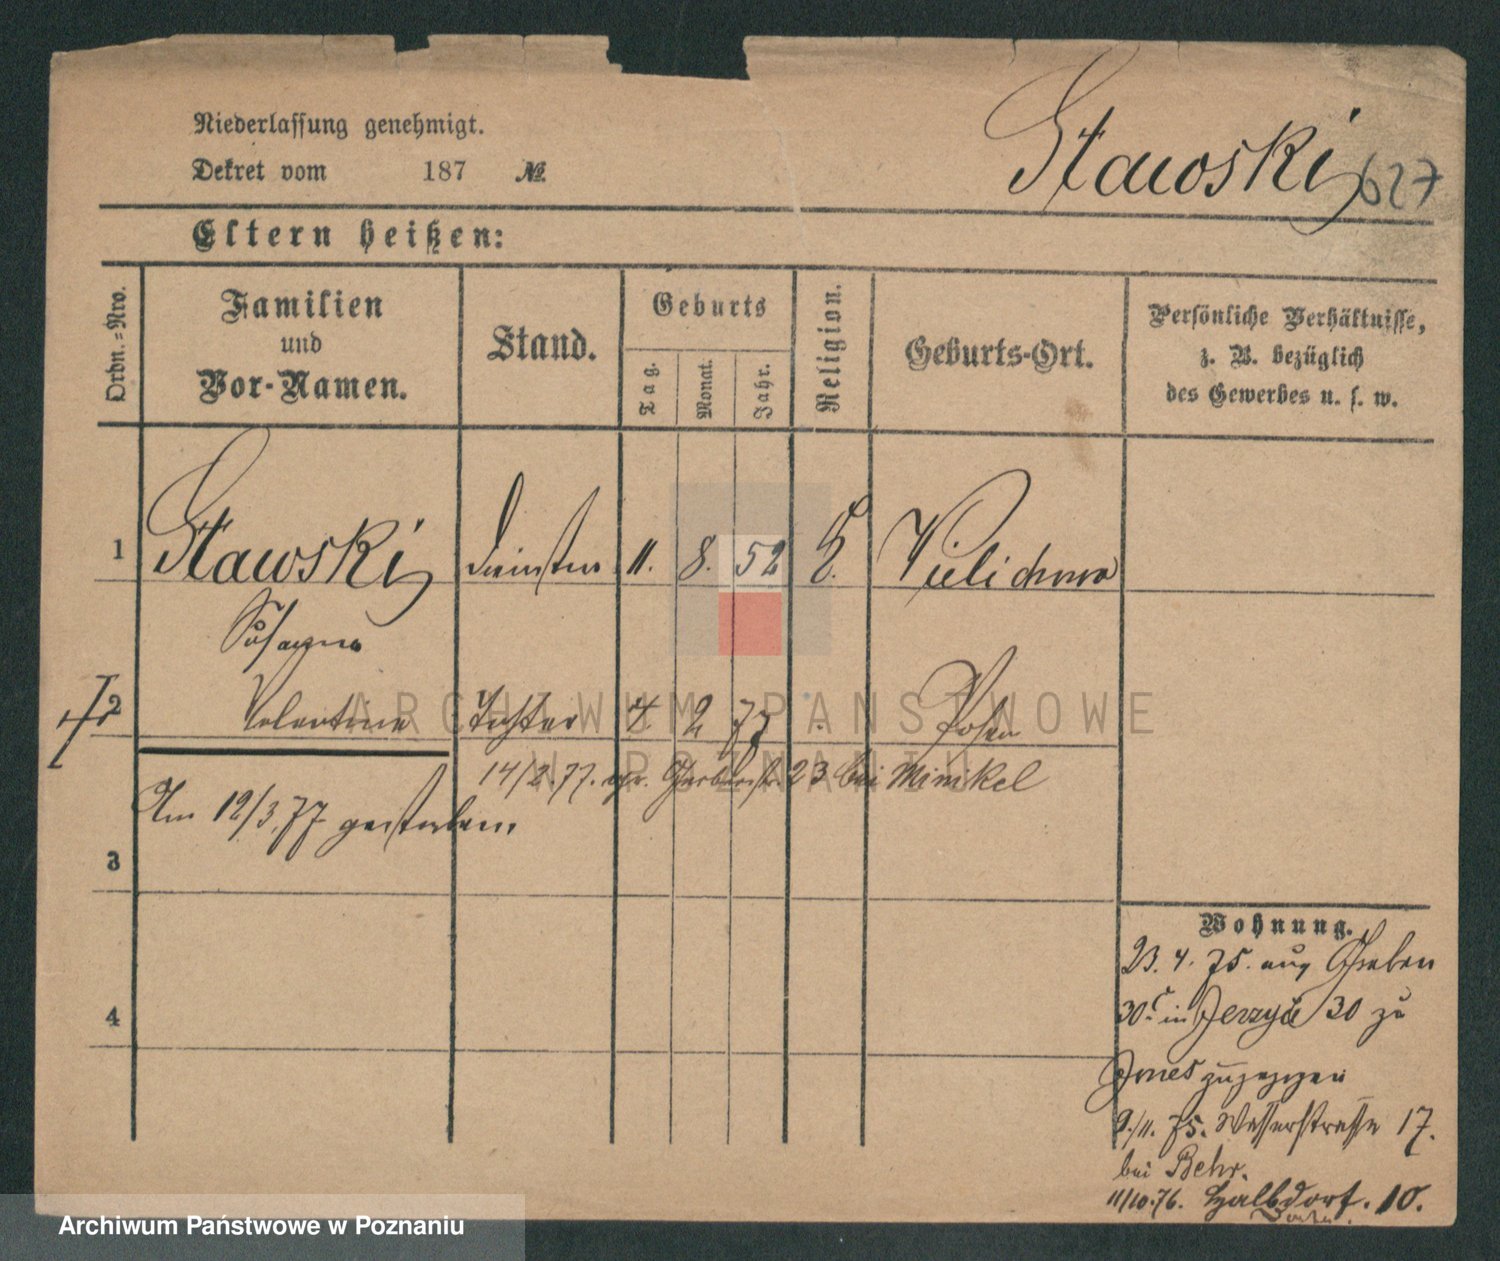 Niederlassung genehmigt.
Dekret vom 187 №
Stawski, 627
Eltern heißen:
Ordn.=Nro.
Familien
und
Vor-Namen.
Stand.
Geburts
Tag.
Monat.
Jahr.
Religion.
Geburts-Ort.
Persönliche Verhältnisse,
z. B. bezüglich
des Gewerbes u. s. w.
1 Stawski, 11. 8. 52
2 Valentine Tochter 4. 2 77 Posen
14/2. 77. gr. Gerberstr. 23 bei Minikel
Am 12/3. 77 gestorben.
3
4
Wohnung.
23. 4. 75. aus Graben
30 in Jerzyce 30 zu
zugezogen
9./11. 75. Wasserstrasse 17.
bei Behr.
11/10. 76. Halbdorf. 10.
ARCHIWUM PAŃSTWOWE
W POZNANIU
Archiwum Państwowe w Poznaniu